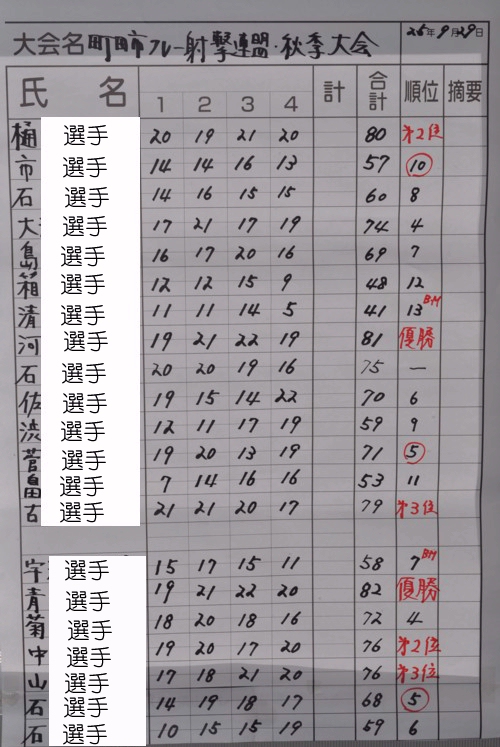 大会名 町田市クレー射撃連盟・秋季大会 25年9月29日
氏名 1 2 3 4 計 合計 順位 摘要
樋 選手 20 19 21 20 80 第2位
市 選手 14 14 16 13 57 10
石 選手 14 16 15 15 60 8
大 選手 17 21 17 19 74 4
島 選手 16 17 20 16 69 7
箱 選手 12 12 15 9 48 12
清 選手 11 11 14 5 41 13 BM
河 選手 19 21 22 19 81 優勝
石 選手 20 20 19 16 75 —
佐 選手 19 15 14 22 70 6
渋 選手 12 11 17 19 59 9
菅 選手 19 20 13 19 71 5
畠 選手 7 14 16 16 53 11
古 選手 21 21 20 17 79 第3位
宇 選手 15 17 15 11 58 7 BM
青 選手 19 21 22 20 82 優勝
菊 選手 18 20 18 16 72 4
中 選手 19 20 17 20 76 第2位
山 選手 17 18 21 20 76 第3位
石 選手 14 19 18 17 68 5
石 選手 10 15 15 19 59 6